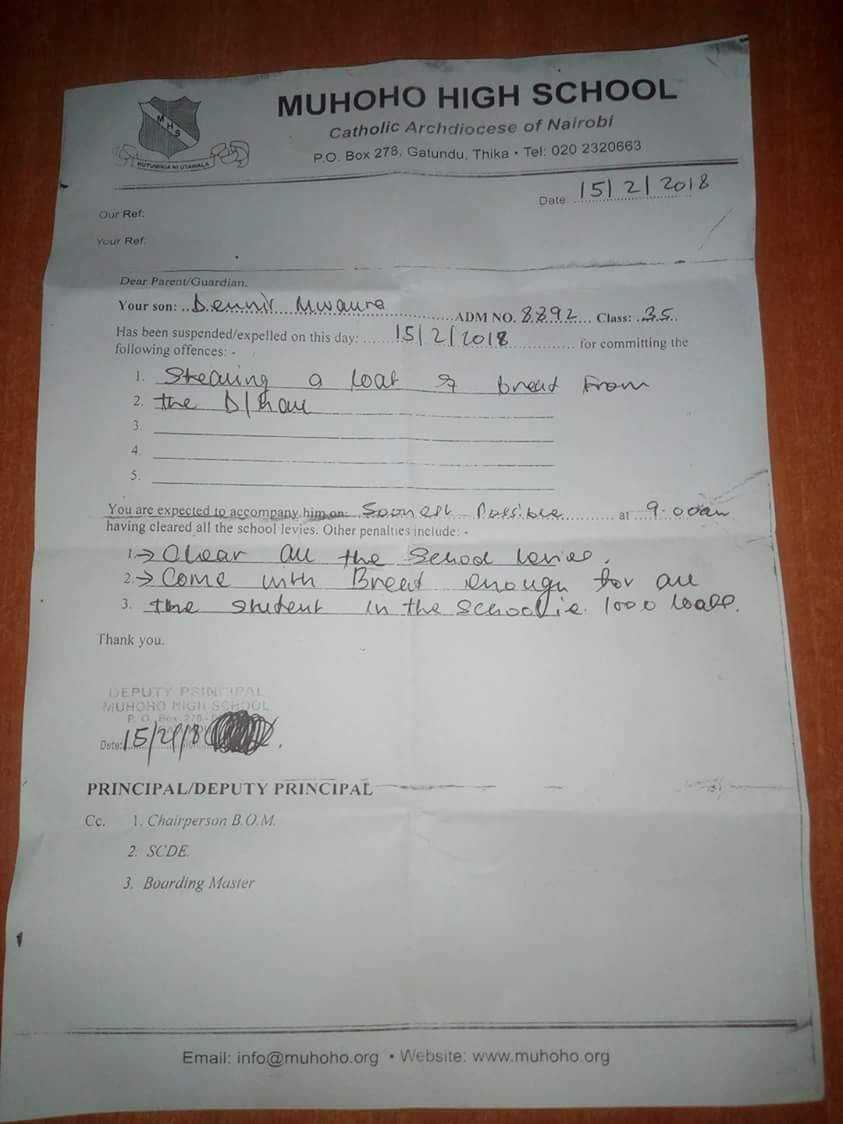 MHS
KUTUMIKIA NI UTAWALA
MUHOHO HIGH SCHOOL
Catholic Archdiocese of Nairobi
P.O. Box 278, Gatundu, Thika • Tel: 020 2320663
Date 15/2/2018
Our Ref:
Your Ref:
Dear Parent/Guardian,
Your son: Dennis Mwaura ADM NO. 8892 Class: 3S
Has been suspended/expelled on this day: 15/2/2018 for committing the
following offences: -
1. Stealing a loaf of bread from
2. the D/hall
3.
4.
5.
You are expected to accompany him on: Soonest Possible at 9.00am
having cleared all the school levies. Other penalties include: -
1. → Clear all the school levies.
2. → Come with Bread enough for all
3. the student in the school i.e. 1000 loafs.
Thank you.
DEPUTY PRINCIPAL
MUHOHO HIGH SCHOOL
P. O. Box 278
Date: 15/2/18
PRINCIPAL/DEPUTY PRINCIPAL
Cc. 1. Chairperson B.O.M.
2. SCDE.
3. Boarding Master
Email: info@muhoho.org • Website: www.muhoho.org